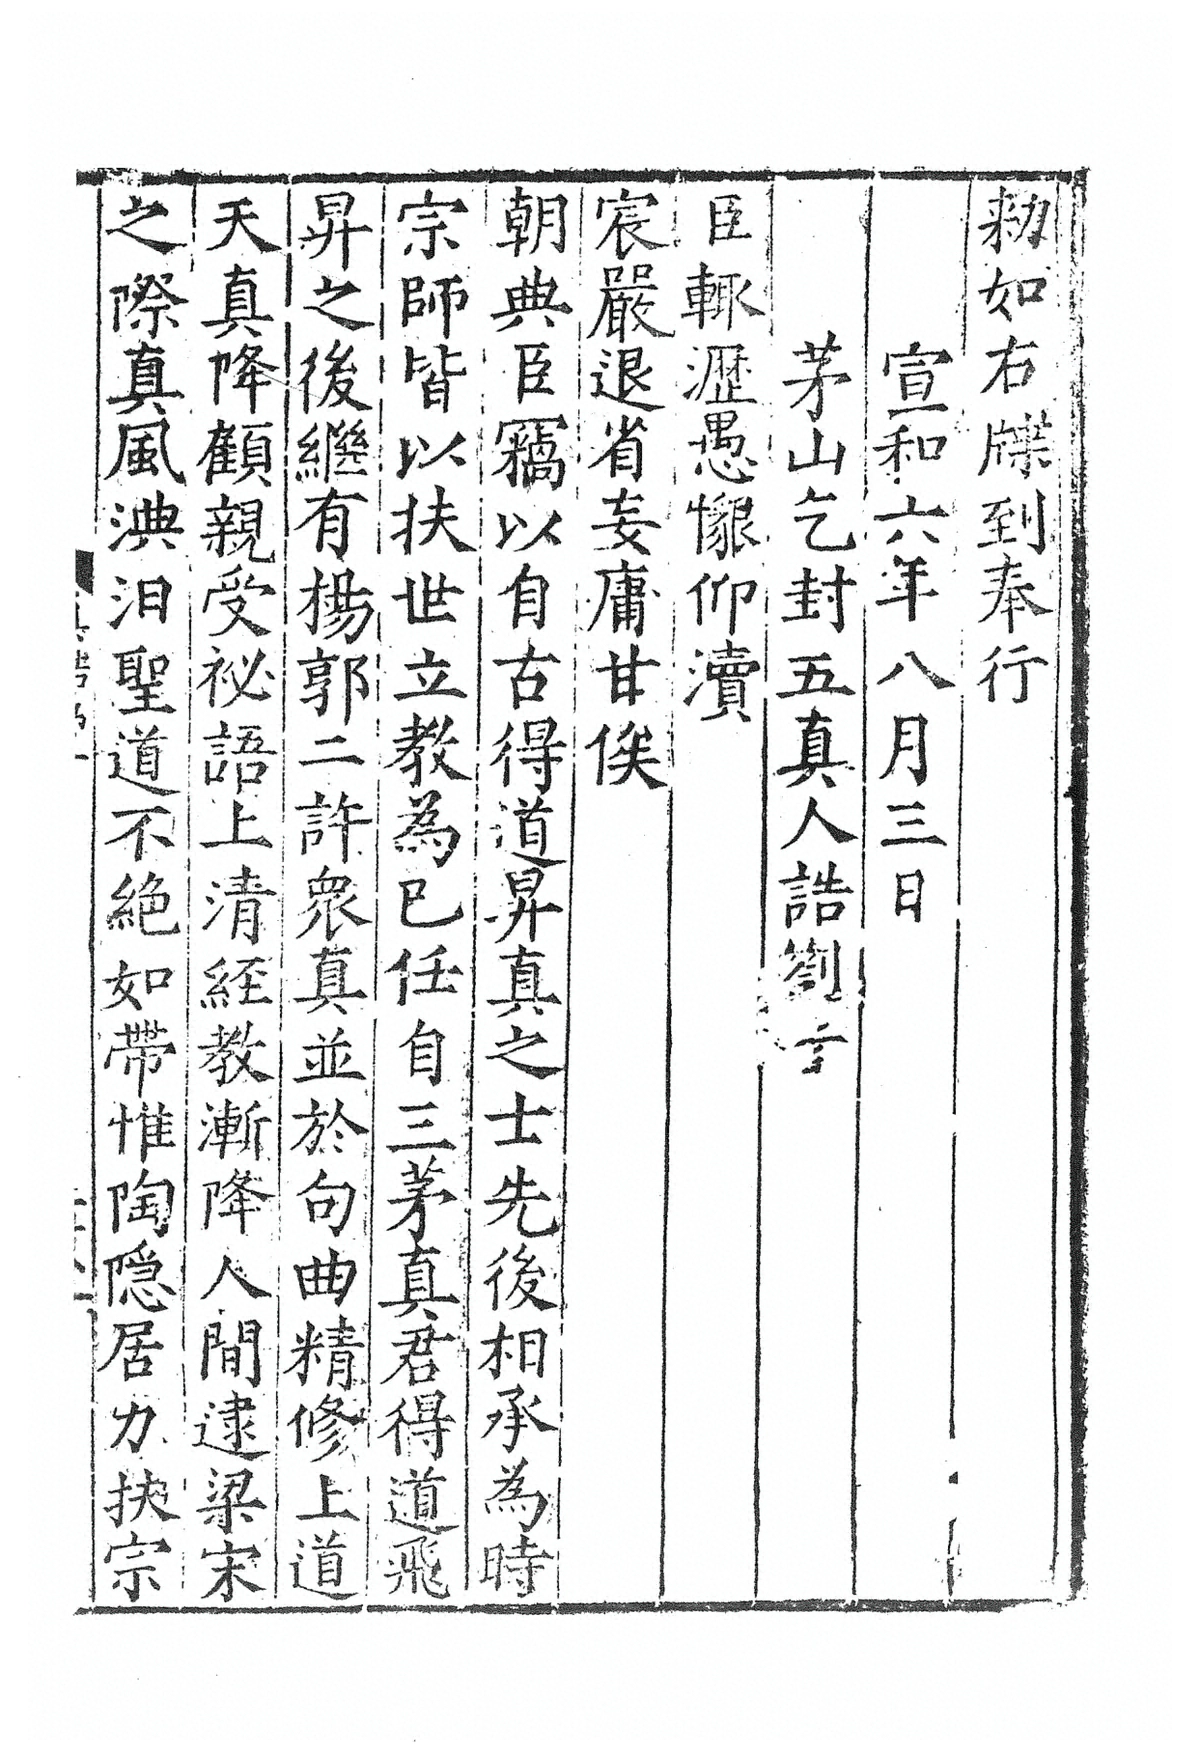 勑如右牒到奉行
宣和六年八月三日
茅山乞封五真人誥劄子
臣輙瀝愚懇仰瀆
宸嚴退省妄庸甘俟
朝典臣竊以自古得道昇真之士先後相承為時
宗師皆以扶世立教為已任自三茅真君得道飛
昇之後繼有楊郭二許衆真並於句曲精修上道
天真降顧親受祕語上清經教漸降人間逮梁宋
之際真風淟汩聖道不絶如帶惟陶隠居力扶宗